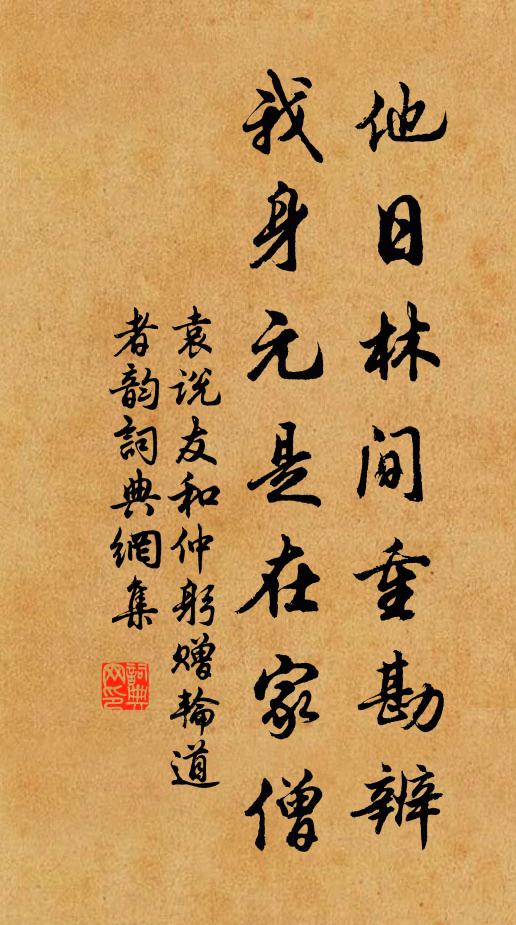 他日林間重勘辨
我身元是在家僧
袁说友和仲躬赠輪道
者韵詞典網集
詞典
网印